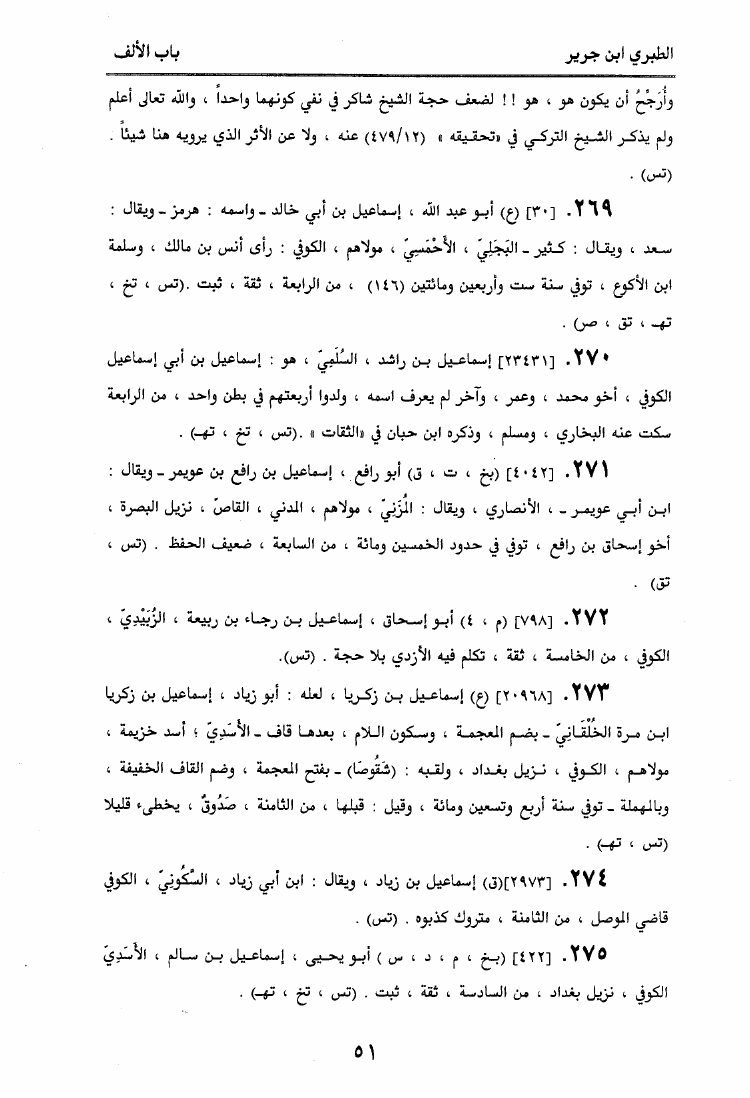 الطبري ابن جرير
باب الألف
وأُرَجْحُ أن يكون هو ، هو !! لضعف حجة الشيخ شاكر في نفي كونهما واحداً ، والله تعالى أعلم
ولم يذكر الشيخ التركي في «تحقيقه » (٤٧٩/١٢) عنه ، ولا عن الأثر الذي يرويه هنا شيئاً .
(تس) .
٢٦٩. [٣٠] (ع) أبو عبد الله ، إسماعيل بن أبي خالد ـ واسمه : هرمز ـ ويقال :
سعد ، ويقال : كثير ـ البَجَلِيّ ، الأَحْمَسِيّ ، مولاهم ، الكوفي : رأى أنس بن مالك ، وسلمة
ابن الأكوع ، توفي سنة ست وأربعين ومائتين (١٤٦) ، من الرابعة ، ثقة ، ثبت .(تس ، تخ ،
تهـ ، تق ، صر) .
٢٧٠. [٢٣٤٣١] إسماعيل بن راشد ، السُّلَمِيّ ، هو : إسماعيل بن أبي إسماعيل
الكوفي ، أخو محمد ، وعمر ، وآخر لم يعرف اسمه ، ولدوا أربعتهم في بطن واحد ، من الرابعة
سكت عنه البخاري ، ومسلم ، وذكره ابن حبان في «الثقات » .(تس ، تخ ، تهـ) .
٢٧١. [٤٠٤٢] (بخ ، ت ، ق) أبو رافع ، إسماعيل بن رافع بن عويمر ـ ويقال :
ابن أبي عويمر ـ ، الأنصاري ، ويقال : المُزَنِيّ ، مولاهم ، المدني ، القاصّ ، نزيل البصرة ،
أخو إسحاق بن رافع ، توفي في حدود الخمسين ومائة ، من السابعة ، ضعيف الحفظ . (تس ،
تق) .
٢٧٢. [٧٩٨] (م ، ٤) أبو إسحاق ، إسماعيل بن رجاء بن ربيعة ، الزُّبَيْدِيّ ،
الكوفي ، من الخامسة ، ثقة ، تكلم فيه الأزدي بلا حجة . (تس).
٢٧٣. [٢٠٩٦٨] (ع) إسماعيل بن زكريا ، لعله : أبو زياد ، إسماعيل بن زكريا
ابن مرة الخُلْقَانِيّ ـ بضم المعجمة ، وسكون اللام ، بعدها قاف ـ الأَسَدِيّ ؛ أسد خزيمة ،
مولاهم ، الكوفي ، نزيل بغداد ، ولقبه : (شَقُوصَا) ـ بفتح المعجمة ، وضم القاف الخفيفة ،
وبالمهملة ـ توفي سنة أربع وتسعين ومائة ، وقيل : قبلها ، من الثامنة ، صَدُوقٌ ، يخطىء قليلا
(تس ، تهـ) .
٢٧٤. [٢٩٧٣](ق) إسماعيل بن زياد ، ويقال : ابن أبي زياد ، السُّكُونِيّ ، الكوفي
قاضي الموصل ، من الثامنة ، متروك كذبوه . (تس) .
٢٧٥. [٤٢٢] (بخ ، م ، د ، س ) أبو يحيى ، إسماعيل بن سالم ، الأَسَدِيّ
الكوفي ، نزيل بغداد ، من السادسة ، ثقة ، ثبت . (تس ، تخ ، تهـ) .
٥١